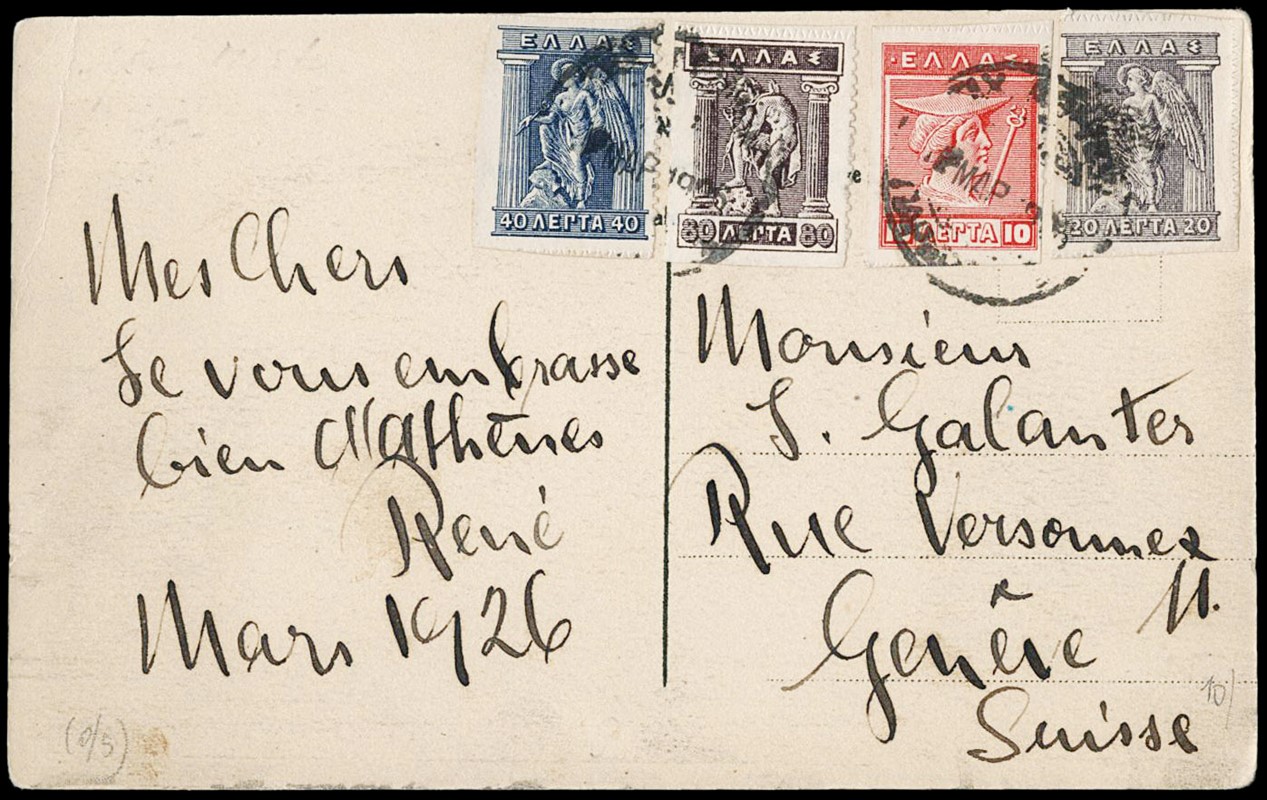 ΕΛΛΑΣ
40 ΛΕΠΤΑ 40
ΕΛΛΑΣ
80 ΛΕΠΤΑ 80
ΕΛΛΑΣ
ΛΕΠΤΑ 10
ΕΛΛΑΣ
20 ΛΕΠΤΑ 20
ΜΑΡ
ΜΑΡ
Mes Chers
Je vous embrasse
bien d'Athènes
René
Mars 1926
Monsieur
S. Galanter
Rue Versonnex
11.
Genève
Suisse
10)